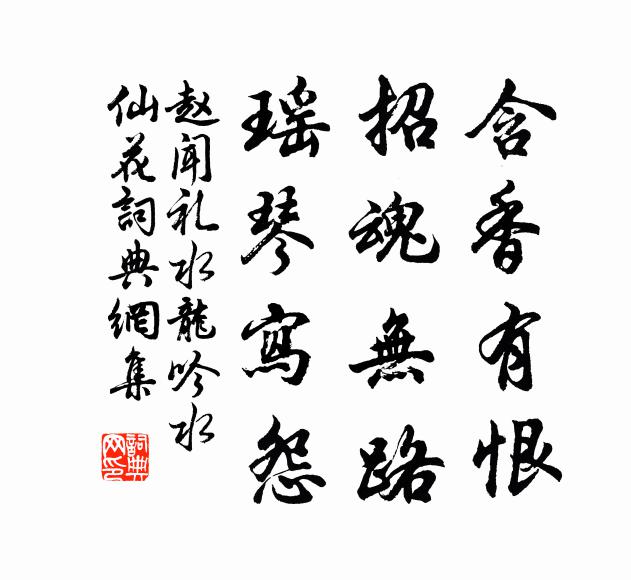 含香有恨
招魂無路
瑶琴寫怨
赵闻礼水龍吟水
仙花詞典網集
詞典网印